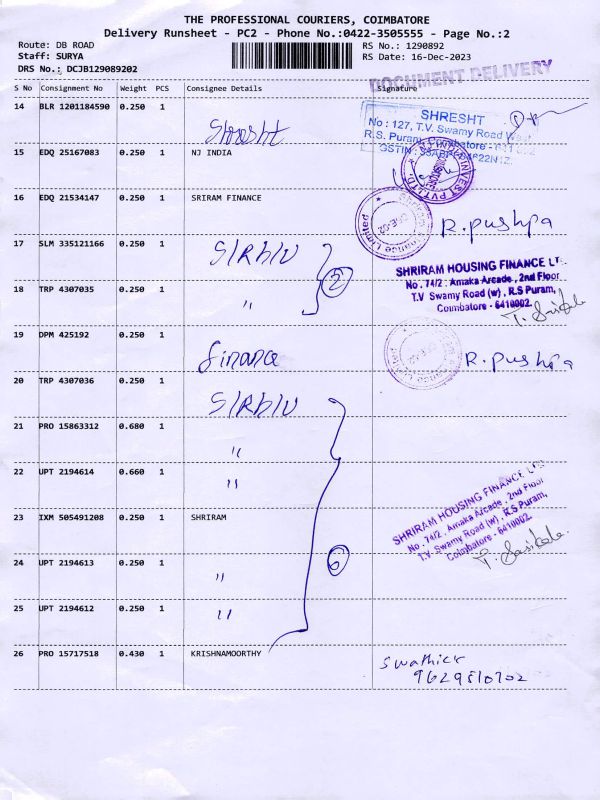 THE PROFESSIONAL COURIERS, COIMBATORE
Delivery Runsheet - PC2 - Phone No.:0422-3505555 - Page No.:2
Route: DB ROAD
RS No.: 1290892
Staff: SURYA
RS Date: 16-Dec-2023
DRS No.: DCJB129089202
DOCUMENT DELIVERY
S No Consignment No Weight PCS Consignee Details Signature
14 BLR 1201184590 0.250 1 Shresht
SHRESHT
No : 127, T.V. Swamy Road West
R.S. Puram, Coimbatore -
15 EDQ 25167083 0.250 1 NJ INDIA
16 EDQ 21534147 0.250 1 SRIRAM FINANCE R. pushpa
17 SLM 335121166 0.250 1
SHRIRAM HOUSING FINANCE LTD.
No. 74/2 . Amaka Arcade , 2nd Floor
T.V Swamy Road (w) , R.S Puram,
Coimbatore - 6410002.
18 TRP 4307035 0.250 1 " 2
19 DPM 425192 0.250 1 finance R. pushpa
20 TRP 4307036 0.250 1
21 PRO 15863312 0.680 1 "
22 UPT 2194614 0.660 1 "
23 IXM 505491208 0.250 1 SHRIRAM
SHRIRAM HOUSING FINANCE LTD
No . 74/2 . Amaka Arcade , 2nd Floor
T.V. Swamy Road (w) , R.S Puram,
Coimbatore - 6410002.
T. Sasikala
24 UPT 2194613 0.250 1 " 6
25 UPT 2194612 0.250 1 "
26 PRO 15717518 0.430 1 KRISHNAMOORTHY